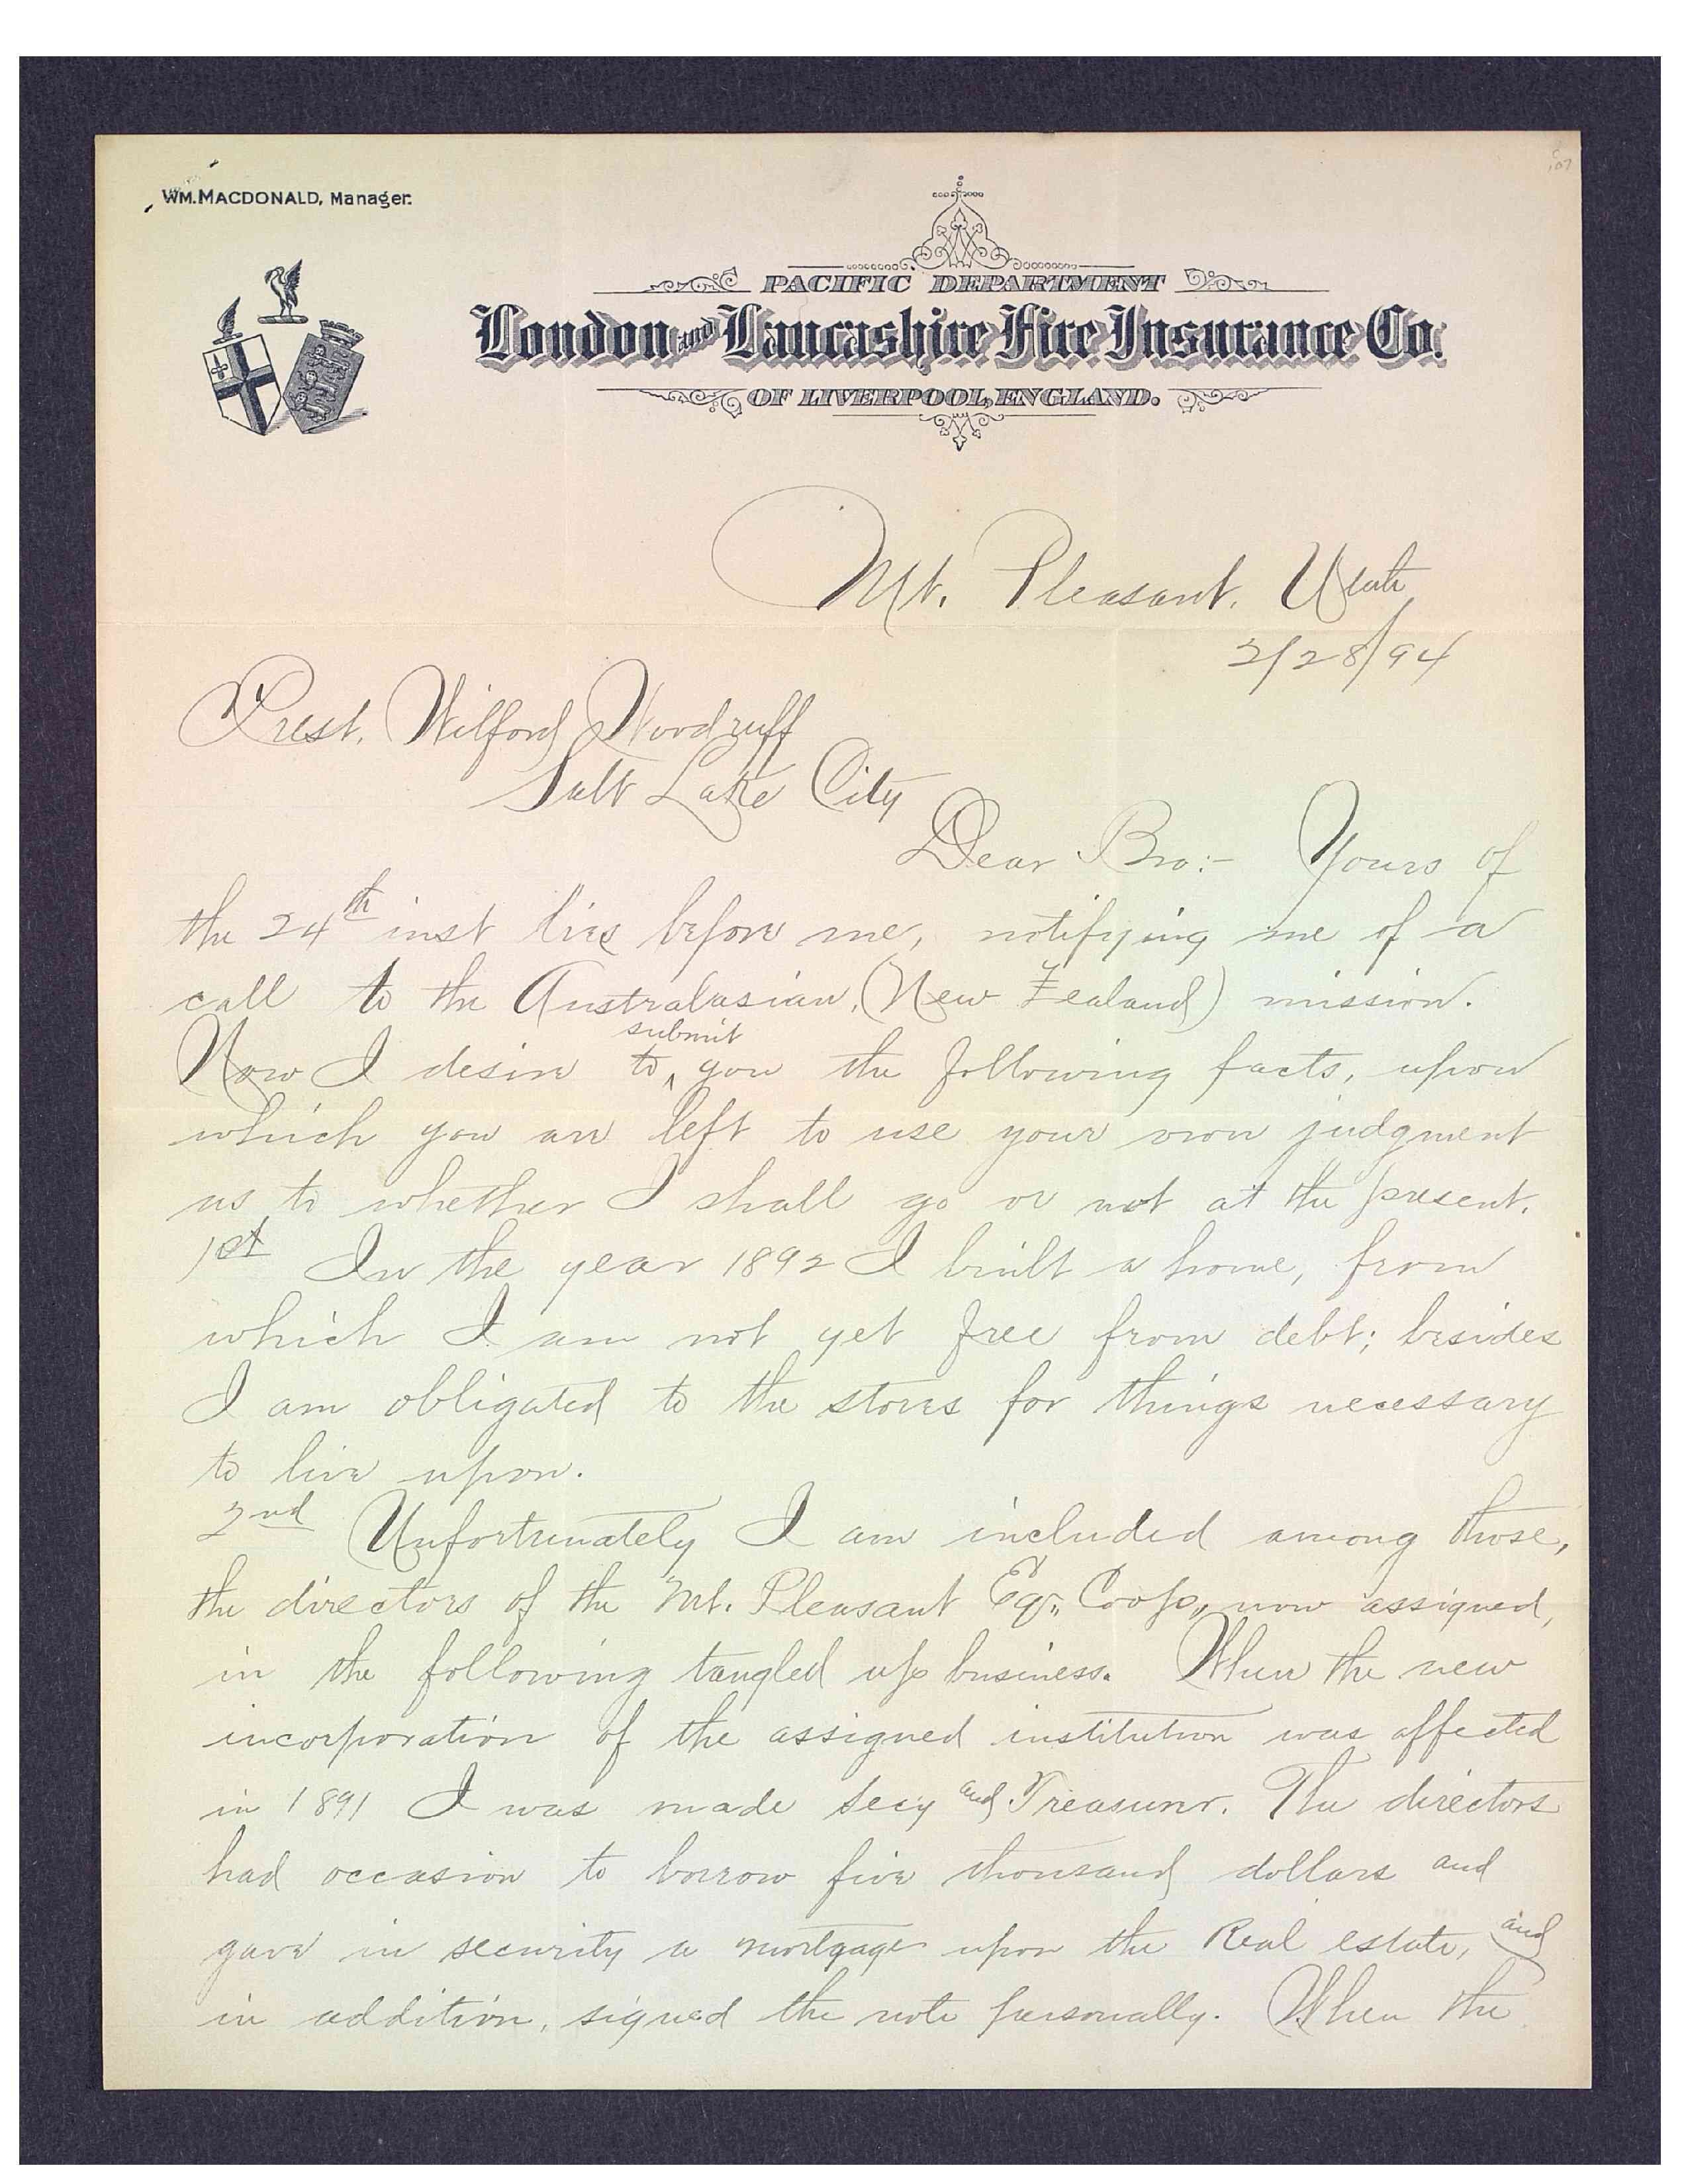 WM. MACDONALD, Manager.
PACIFIC DEPARTMENT
London and Lancashire Fire Insurance Co.
OF LIVERPOOL, ENGLAND.
Mt. Pleasant, Utah
2/28/94
Prest. Wilford Woodruff
Salt Lake City
Dear Bro:- Yours of
the 24th inst lies before me, notifying me of a
call to the Australasian, (New Zealand) mission.
Now I desire to submit you the following facts, upon
which you are left to use your own judgment
as to whether I shall go or not at the present.
1st In the year 1892 I built a home, from
which I am not yet free from debt; besides
I am obligated to the stores for things necessary
to live upon.
2nd Unfortunately I am included among those,
the directors of the Mt. Pleasant Eq. Coop., now assigned,
in the following tangled up business. When the new
incorporation of the assigned institution was affected
in 1891 I was made Secy and Treasurer. The directors
had occasion to borrow five thousand dollars and
gave in security a mortgage upon the Real estate, and
in addition, signed the note personally. When the